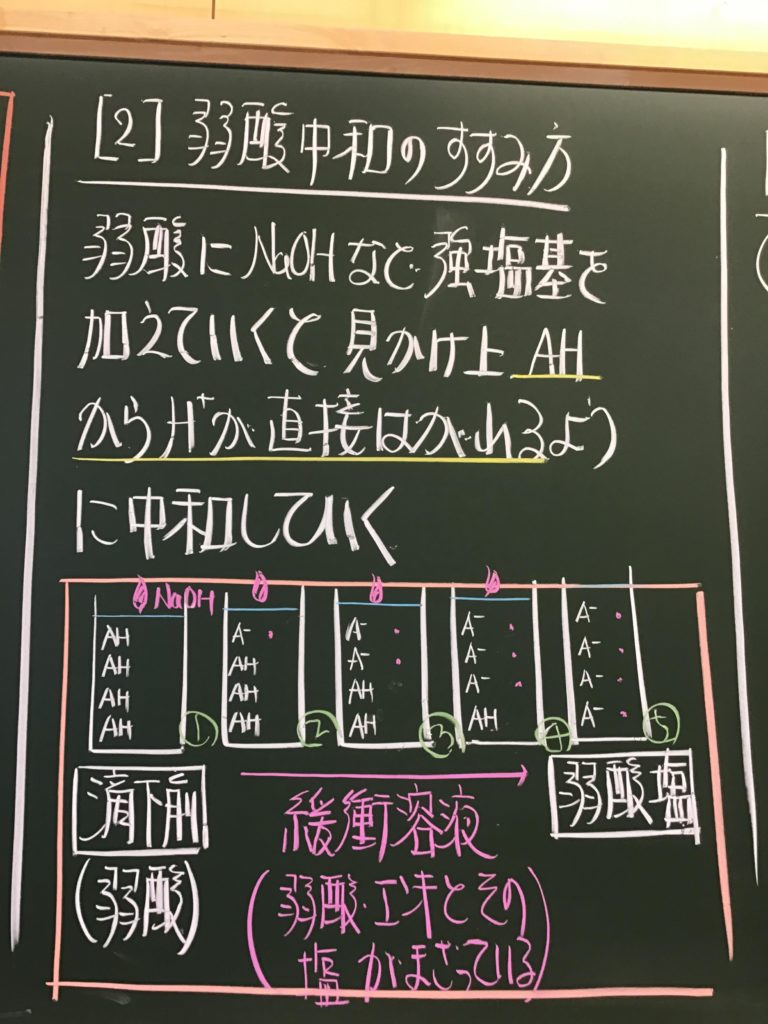 [2] 弱酸中和のすすみ方
弱酸にNaOHなど強塩基を
加えていくと見かけ上 AH
からH⁺が直接はがれるよう
に中和していく
NaOH
AH
AH
AH
AH
①
A⁻
AH
AH
AH
②
A⁻
A⁻
AH
AH
③
A⁻
A⁻
A⁻
AH
④
A⁻
A⁻
A⁻
A⁻
⑤
滴下前
(弱酸)
緩衝溶液
(弱酸・とその
塩がまざっている)
弱酸塩